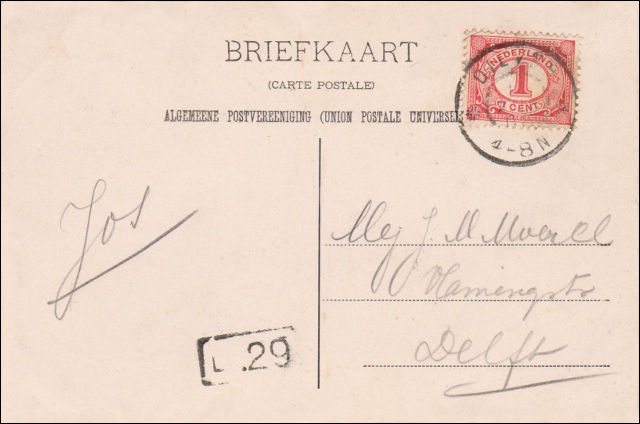 BRIEFKAART
(CARTE POSTALE)
ALGEMEENE POSTVEREENIGING (UNION POSTALE UNIVERSEL
NEDERLAND
1
1 CENT
4-8 N
Jos
Mej J. M. Moerel
Vlamingstr
Delft
.29